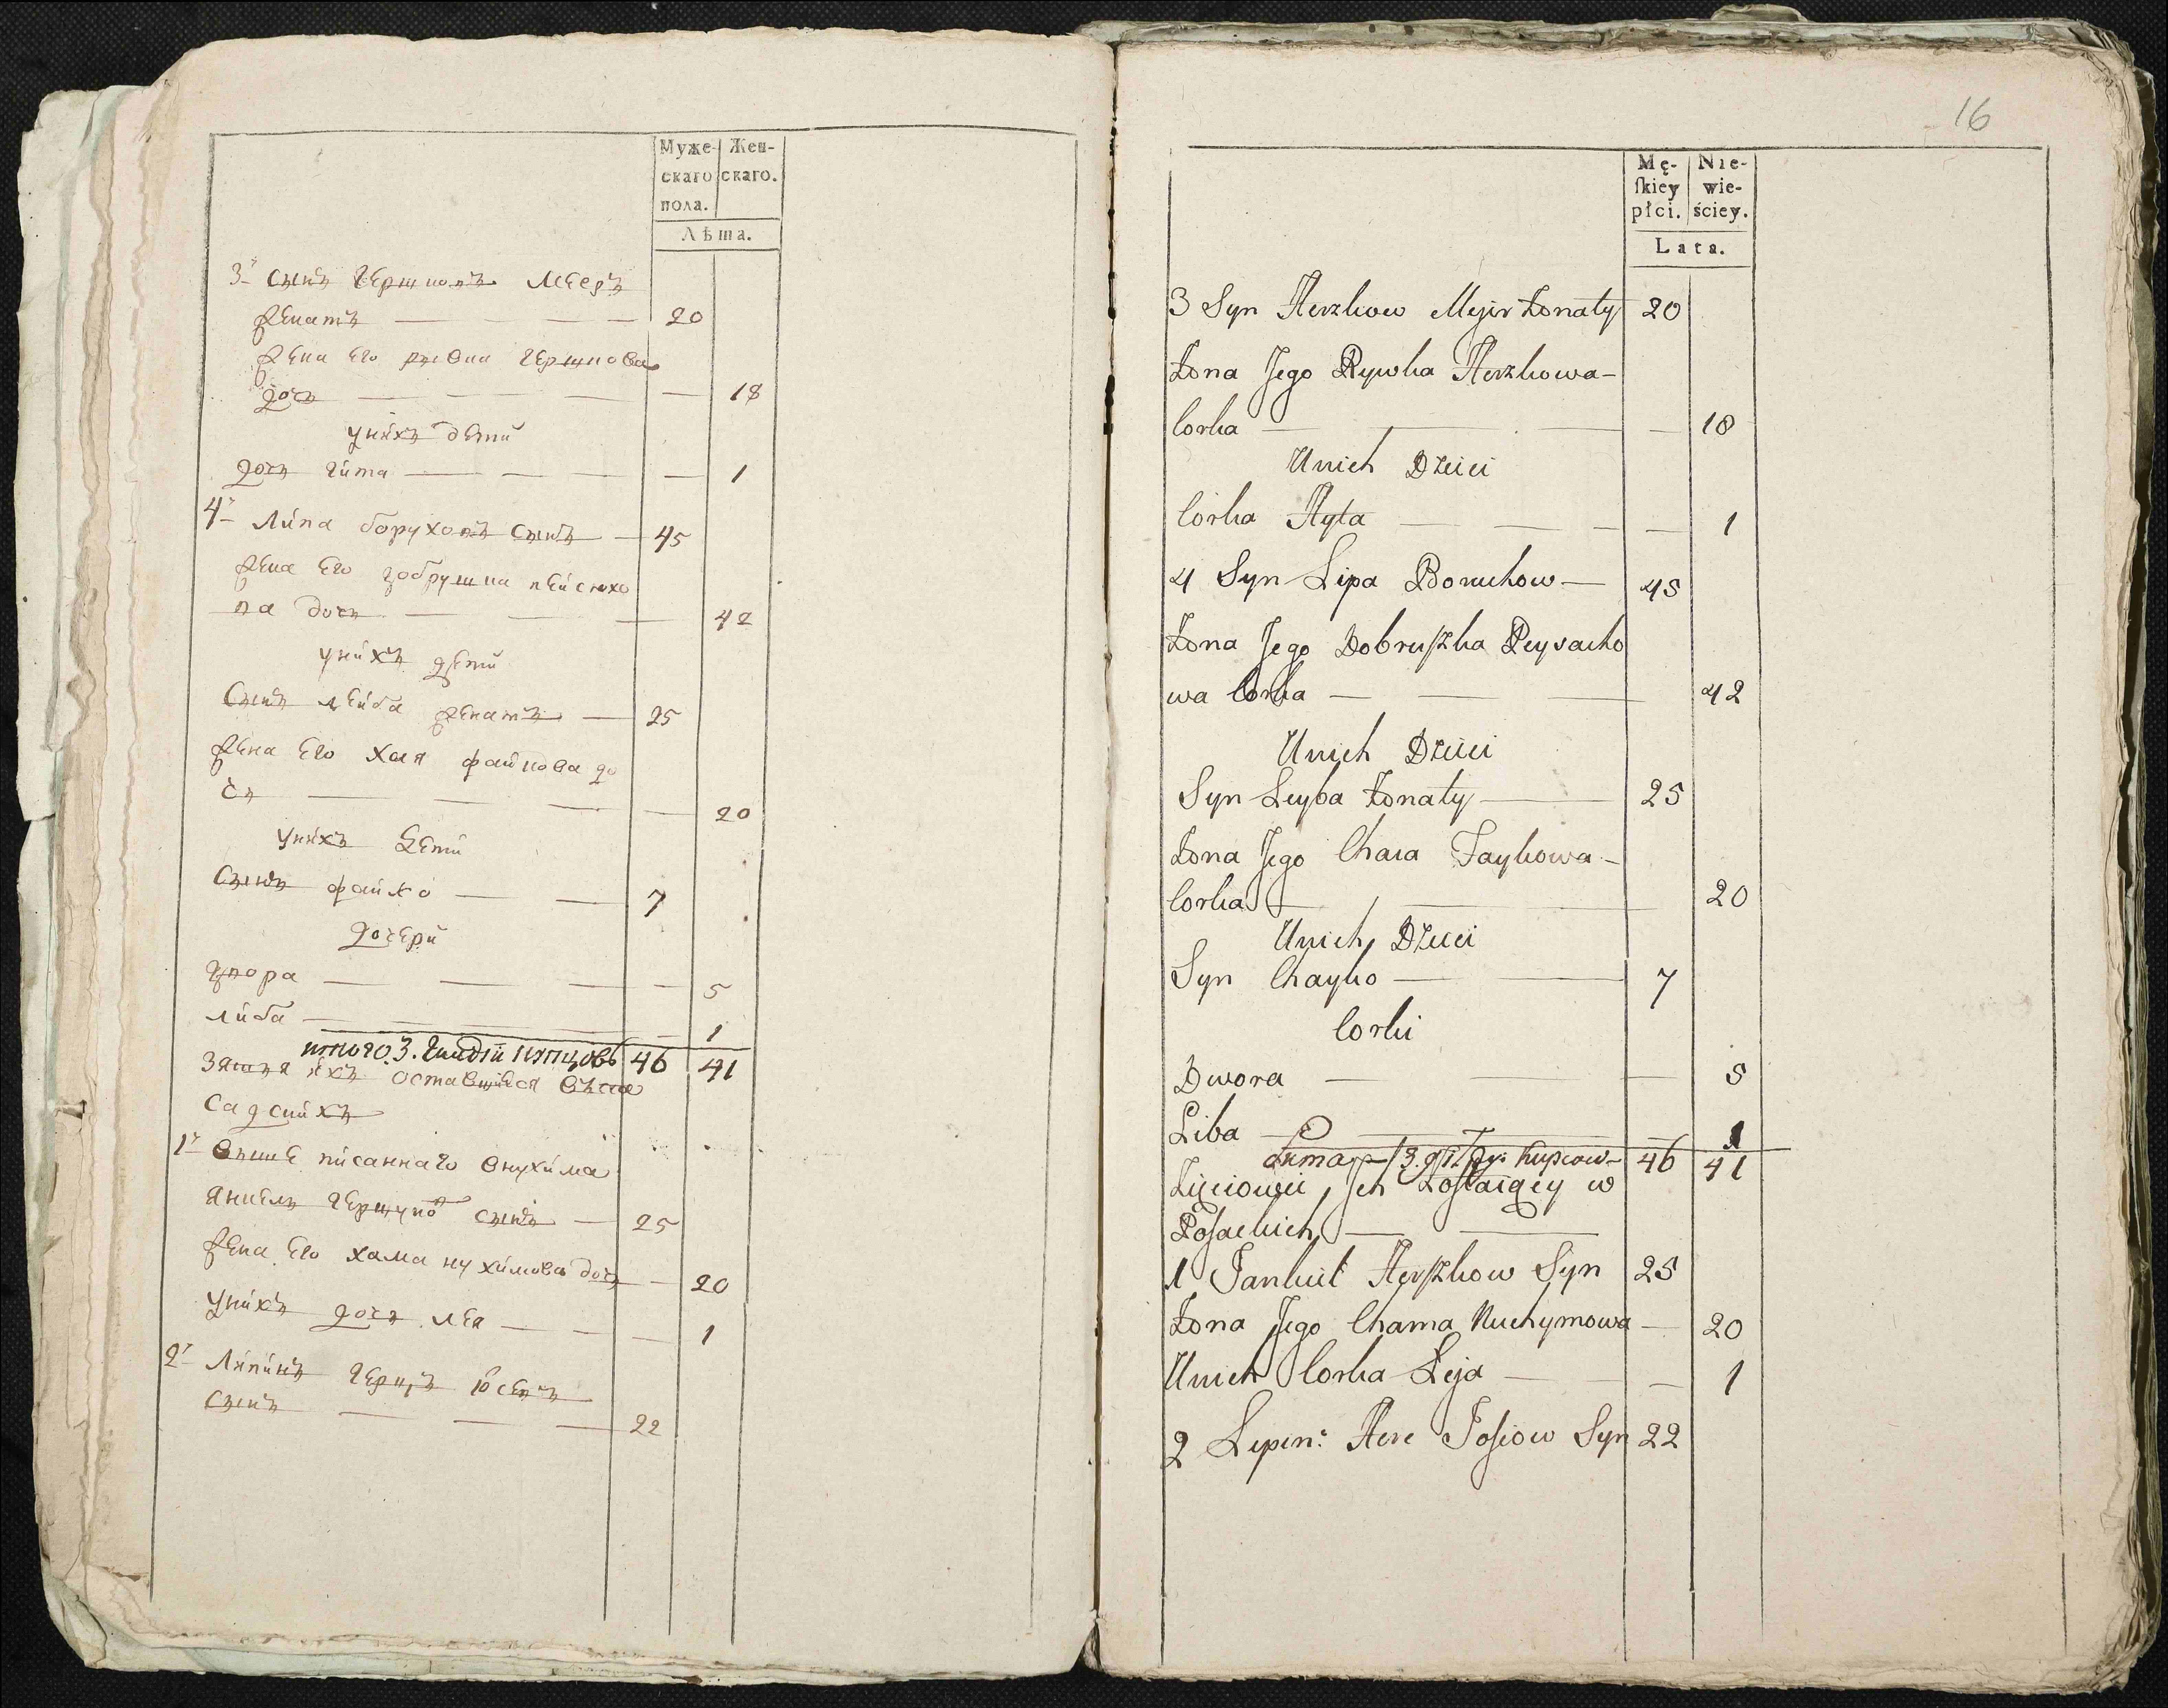 Муже-
скаго
пола.
Жен-
скаго.
Лѣта.
3й сынъ гершковъ мееръ
женатъ — 20
жена его рывка гершкова
дочь — 18
унихъ дети
дочь гита — 1
4й липа боруховъ сынъ — 45
жена его добрушка пейсахо
ва дочь — 42
унихъ дети
сынъ лейба женатъ — 25
жена его хая файкова до
чъ — 20
унихъ дети
сынъ файко — 7
дочери
двора — 5
либа — 1
итого 3. гилдіи купцовъ 46 41
зятья ихъ оставшіеся
1й писаннаго внухима
янкель гершковъ сынъ — 25
жена его хама нухимова дочь — 20
унихъ дочь лея — 1
2й Липинъ герцъ іосевъ
сынъ — 22
16
Mę-
ſkiey
płci.
Nie-
wie-
ściey.
Lata.
3 Syn Herzkow Mejer Żonaty 20
Żona Jego Rywka Herzkowa-
Corka — 18
Unich Dzieci
Corka Hyta — 1
4 Syn Lipa Boruchow — 45
Żona Jego Dobruſzka Peysacho
wa Corka — 42
Unich Dzieci
Syn Leyba Żonaty — 25
Żona Jego Chaia Faykowa-
Corka — 20
Unich Dzieci
Syn Chayko — 7
Corki
Dwora — 5
Liba — 1
3. Kupcow 46 41
Zięciowie Jch w
1 Jankiel Herſzkow Syn 25
Żona Jego Chama Nuchymowa — 20
Unich Corka Leja — 1
2 Lipin: Herc Joſiow Syn 22